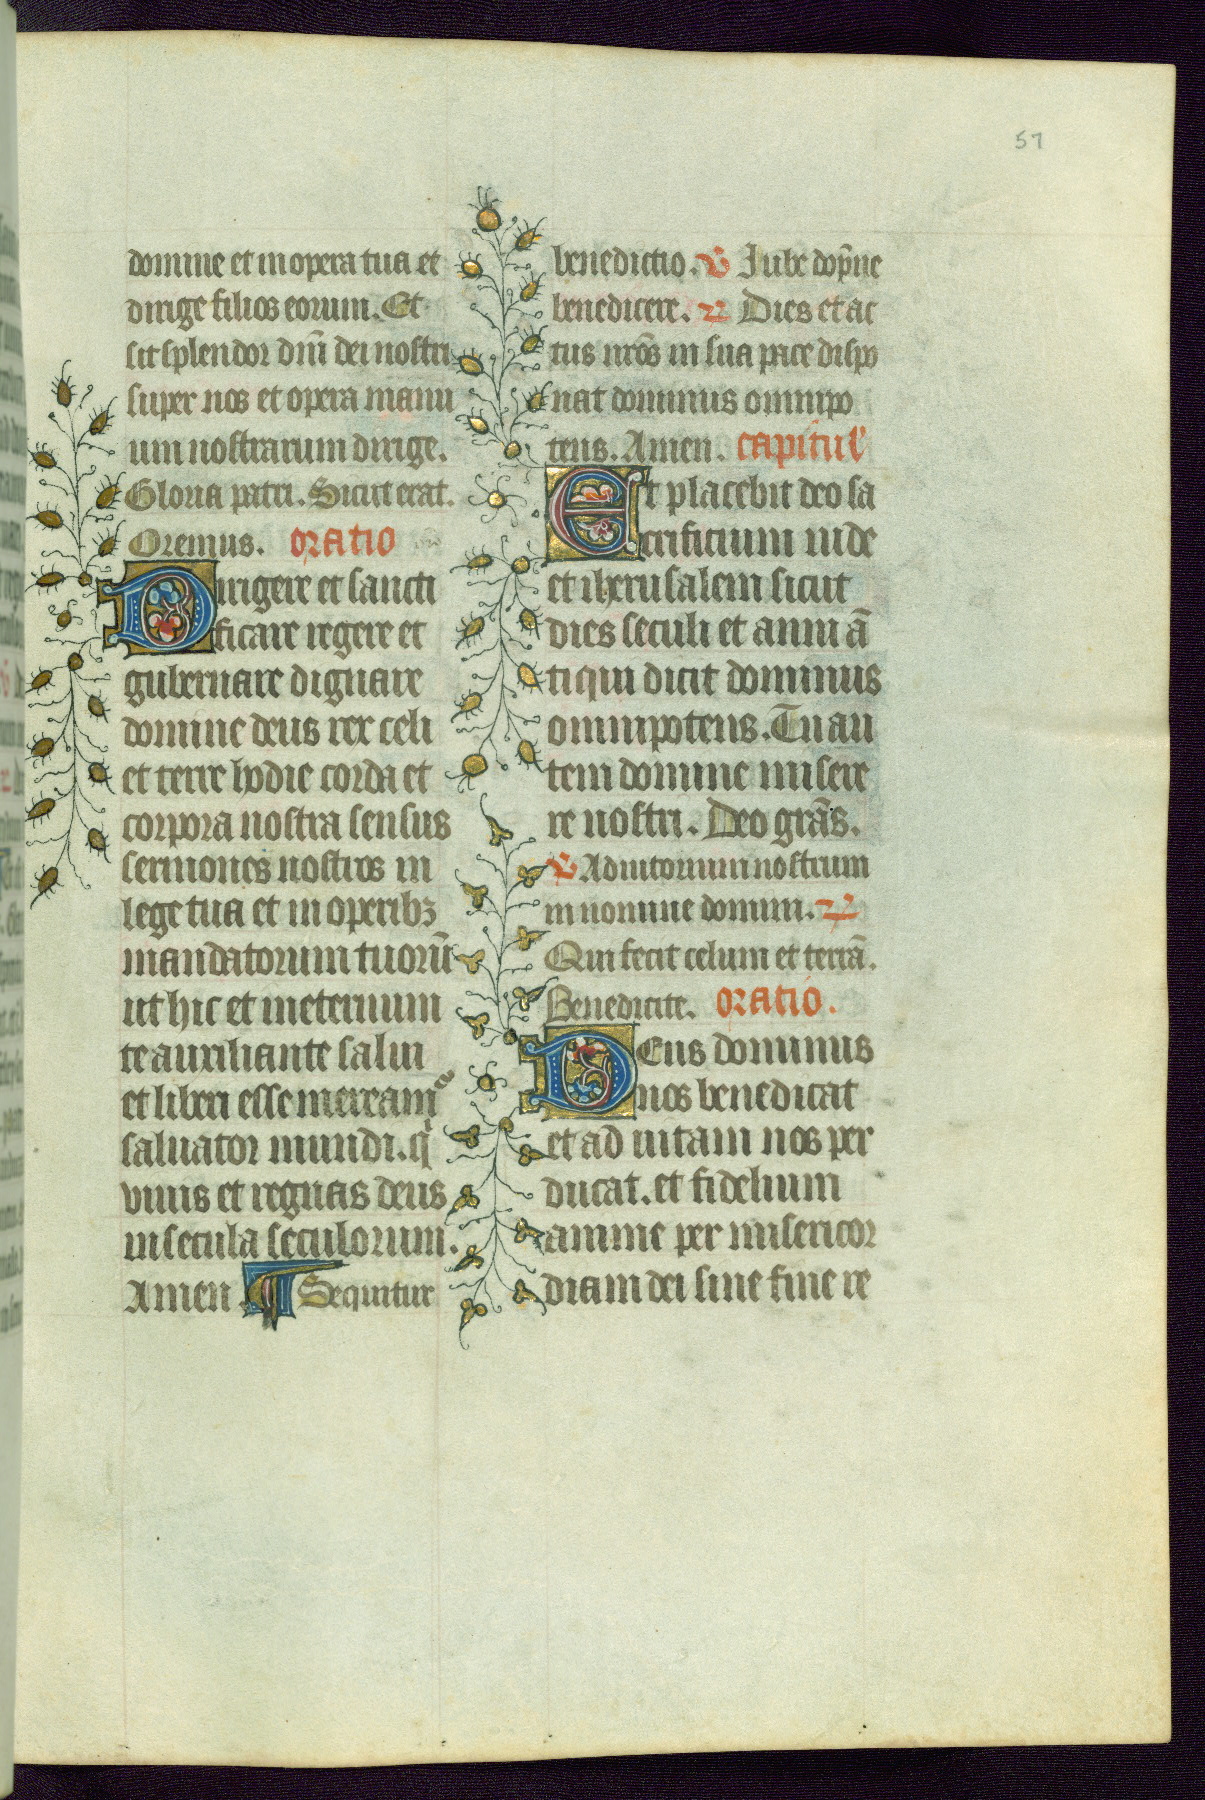 57
domine et in opera tua et
dirige filios eorum. Et
sit splendor dn̄i dei nostri
super nos et opera manu
um nostrarum dirige.
Gloria patri. Sicut erat.
Oremus. oratio
Dirigere et sancti
ficare regere et
gubernare dignare
domine deus rex celi
et terre hodie corda et
corpora nostra sensus
sermones nostros in
lege tua et in operibꝫ
mandatorum tuorū
ut hic et ineternum
te auxiliante salui
et liberi esse meream᷒
saluator mundi. qͥ
viuis et regnas deus
in secula seculorum.
Amen. ¶ Sequitur
benedictio. ℣ Iube dop̄ne
benedicere. ℟ Dies et ac
tus nr̄os in sua pace dispo
nat dominus omnipo
tens. Amen. capitul'
Et placebit deo sa
crificium iude
et iherusalem sicut
dies seculi et anni ā
tiqui dicit dominus
omnipotens. Tu au
tem domine misere
re nostri. Deo grās.
℣ Adiutorium nostrum
in nomine domini. ℟
Qui fecit celum et terrā.
Benedicite. oratio.
Deus dominus
nos benedicat
et ad uitam nos per
ducat. et fidelium
anime per misericor
diam dei sine fine re